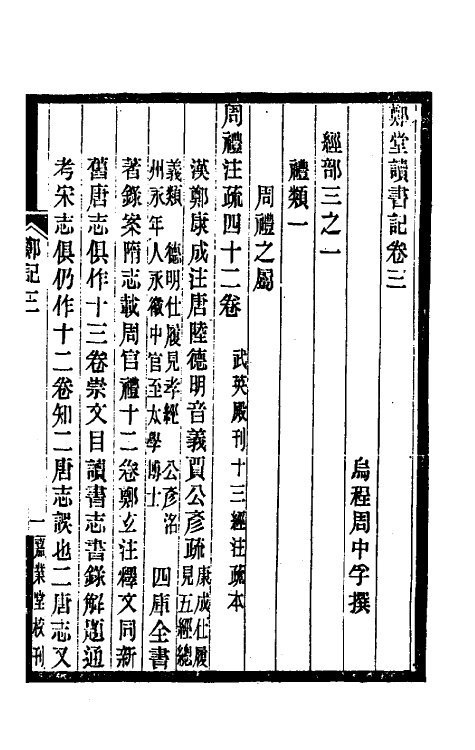 鄭堂讀書記卷三
烏程周中孚撰
經部三之一
禮類一
周禮之屬
周禮注疏四十二卷 武英殿刊十三經注疏本
漢鄭康成注唐陸德明音義賈公彥疏 康成仕履見五經總
義類 德明仕履見孝經 公彥洺
州永年人永徽中官至太學博士 四庫全書
著錄案隋志載周官禮十二卷鄭玄注釋文同新
舊唐志俱作十三卷崇文目讀書志書錄解題通
考宋志俱仍作十二卷知二唐志誤也二唐志又
鄭記三
一
嘉業堂校刊